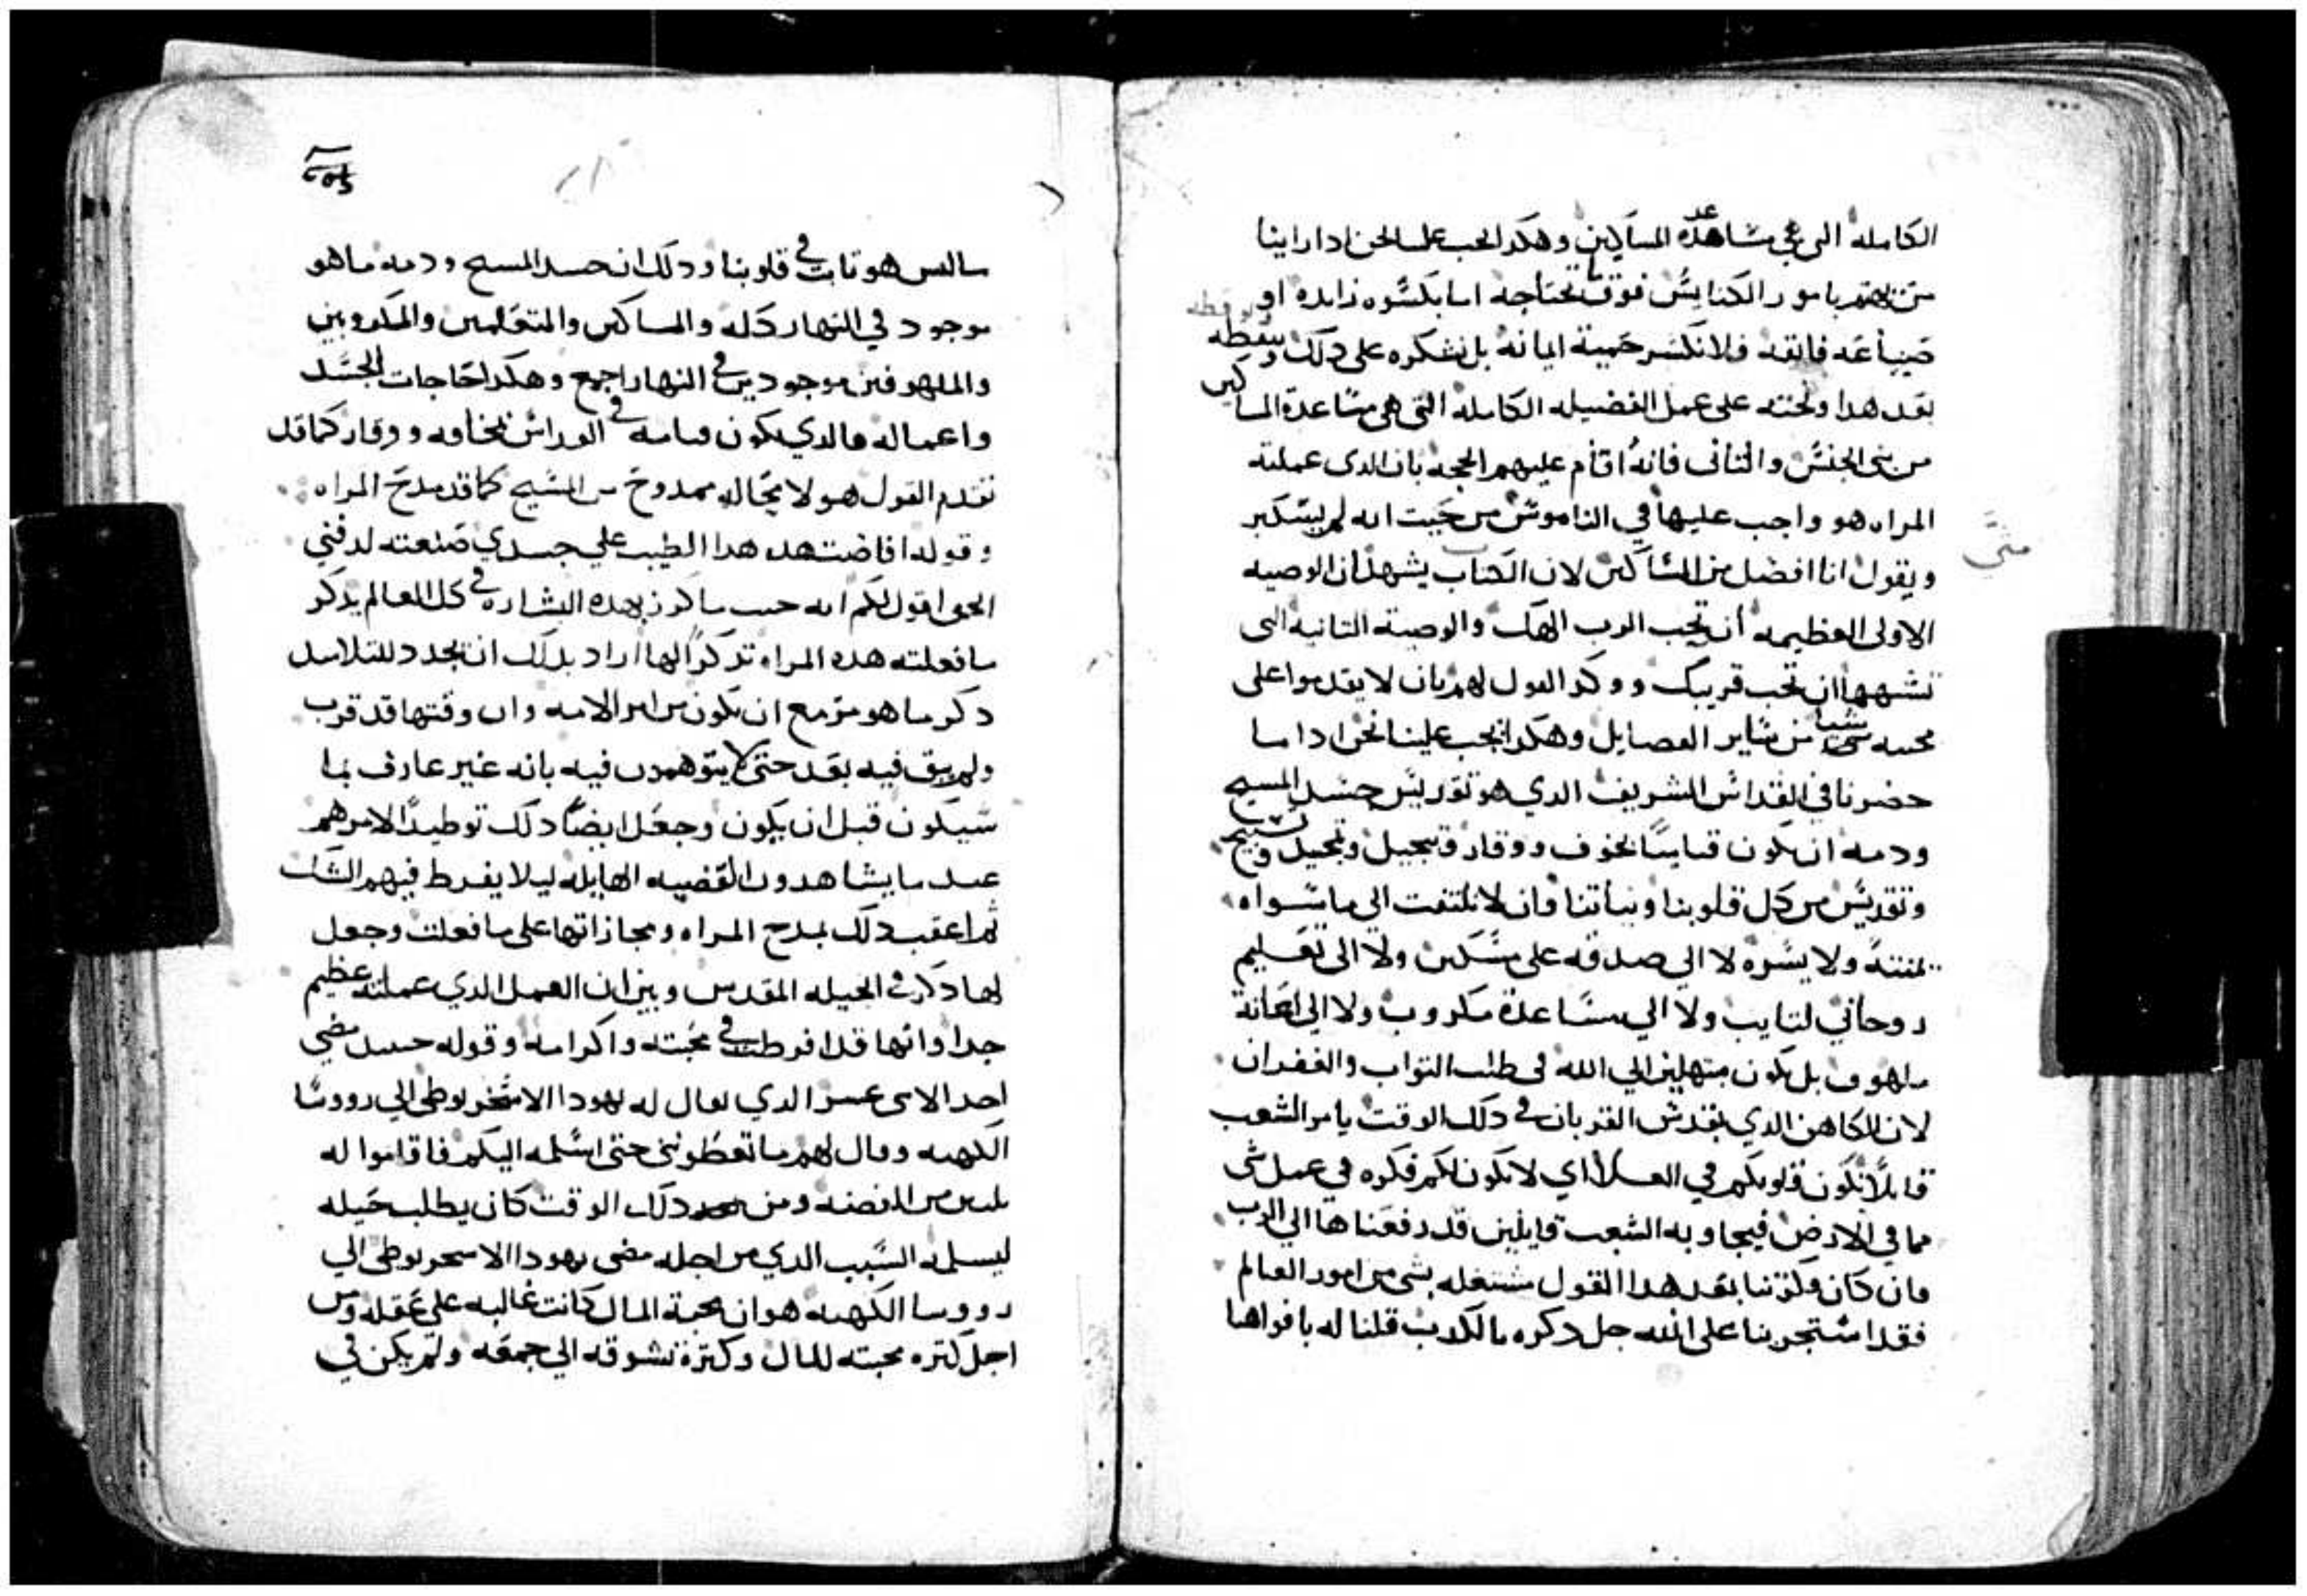 الكامله التي هي مساعدة المساكين وهكدا يجب علينا نحن ادا راينا
من يهتم بامور الكنايس فوق ما تحتاجه اما بكسوه زايده او
صياغه فايقه فلا نكسر حمية ايمانه بل نشكره على دلك ونيقظه
بعد هدا ونحثه على عمل الفضيله الكامله التي هي مساعدة المساكين
من بني الجنس والثاني فانه اقام عليهم الحجه بان الدي عملته
المراه هو واجب عليها في الناموس من حيث انه لم يستكبر
ويقول انا افضل من المساكين لان الكتاب يشهد ان الوصيه
متى
الاولى العظيمه أن تحب الرب الهك والوصية التانيه التي
تشبهها ان تحب قريبك ووكد القول لهم بان لا يقدموا على
محبته شيا من ساير الفضايل وهكدا يجب علينا نحن ادا ما
حضرنا في القداس الشريف الدي هو تقديس جسد المسيح
ودمه ان يكون قيامنا بخوف ووقار وتبجيل وتمجيد وتسبيح
وتقديس من كل قلوبنا ونياتنا وان لا نلتفت الي ما سواه
يمنة ولا يسره لا الي صدقه على مسكين ولا الى تعليم
روحاني لتايب ولا الي مساعدة مكروب ولا الي اعانة
ملهوف بل نكون مبتهلين الي الله في طلب التواب والغفران
لان الكاهن الدي يقدس القربان في دلك الوقت يامر الشعب
قايلا تكون قلوبكم في العلا اي لا تكون لكم فكره في عمل شي
مما في الارض فيجاوبه الشعب قايلين قد رفعناها الي الرب
وان كان فكرتنا بعد هدا القول مشتغله بشي من امور العالم
فقد استجرينا على الله جل دكره بالكدب قلنا له بافواهنا
ما ليس هو تابت في قلوبنا ودلك ان جسد المسيح ودمه ما هو
موجود في النهار كله والمساكين والمتعلمين والمكروبين
والملهوفين موجودين في النهار اجمع وهكدا حاجات الجسد
واعماله فالدي يكون قيامه في القداس بمخافه ووقار كما قد
تقدم القول هو لا محاله ممدوح من المسيح كما قد مدح المراه
وقوله افاضت هده هدا الطيب علي جسدي صنعته لدفني
الحق اقول لكم انه حيث ما كرز بهده البشاره في كل العالم يدكر
ما فعلته هده المراه تدكرا لها اراد بدلك ان يجدد للتلاميد
دكر ما هو مزمع ان يكون من امر الامه وان وقتها قد قرب
ولم يبق فيه بعد حتى لا يتوهمون فيه بانه غير عارف بما
سيكون قبل ان يكون وجعل ايضا دلك توطيدا لامرهم
عند ما يشاهدون القضيه الهايله ليلا يفرط فيهم الشك
ثم اعقب دلك بمدح المراه ومجازاتها على ما فعلت وجعل
لها دكر في انجيله المقدس وبين ان العمل الدي عملته عظيم
جدا وانها قد افرطت في محبته واكرامه وقوله حينيد مضي
احد الاثنى عشر الدي يقال له يهودا الاسخريوطي الي رووسا
الكهنه وقال لهم ما تعطونني حتى اسلمه اليكم فاقاموا له
تلتين من الفضه ومن دلك الوقت كان يطلب حيله
ليسلمه السبب الدي من اجله مضى يهودا الاسخريوطي الي
رووسا الكهنه هو ان محبة المال كانت غالبه على عقله ومن
اجل كتره محبته للمال وكترة تشوقه الي جمعه ولم يكن في